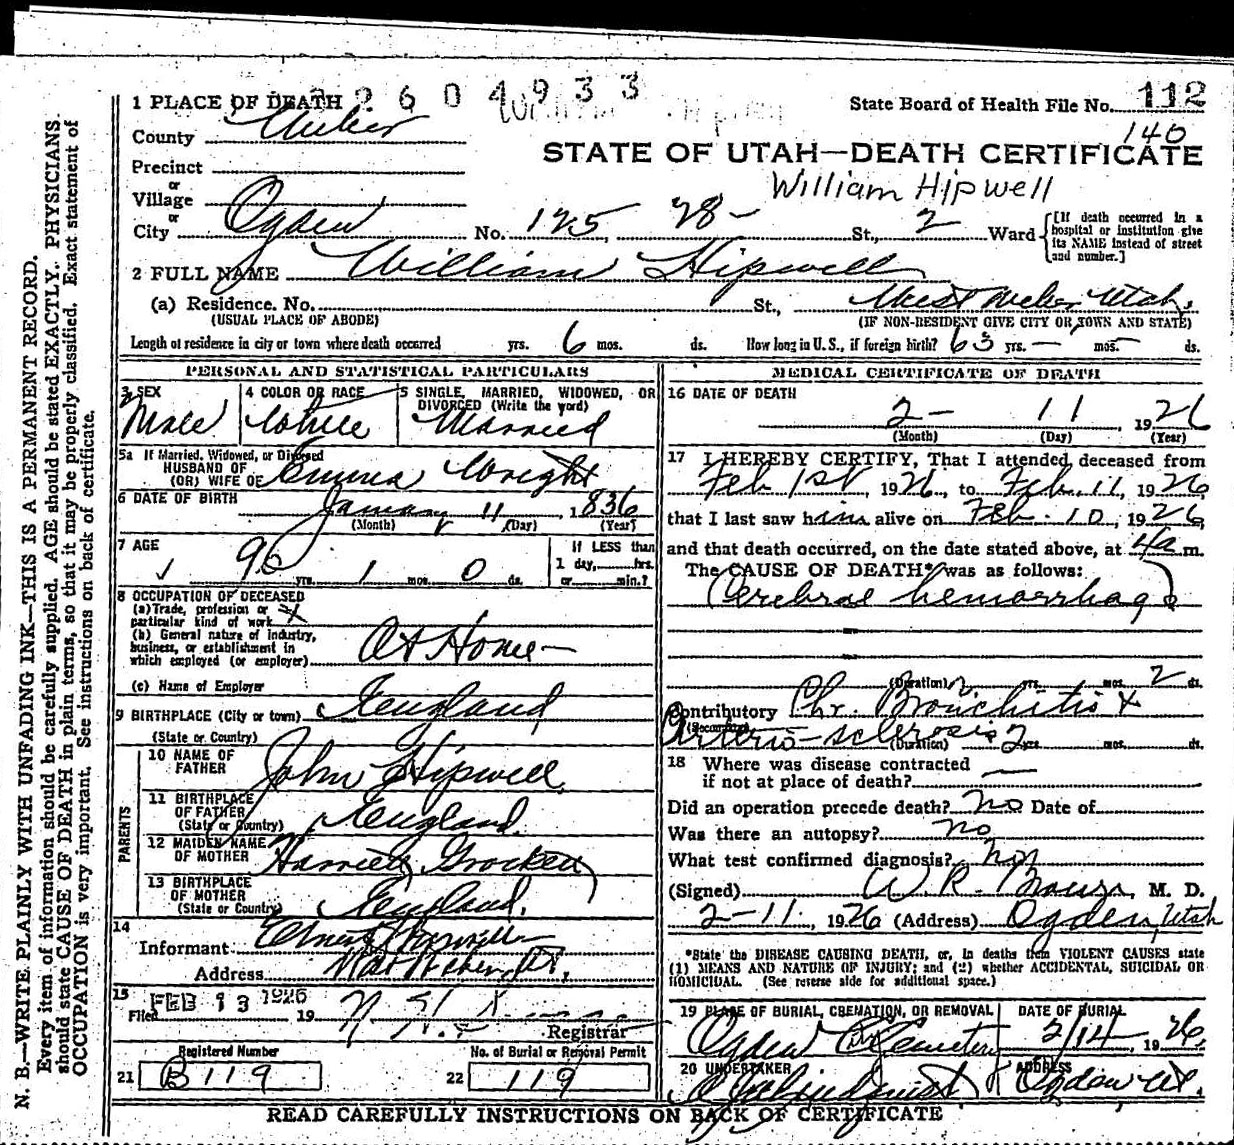 2604933
1 PLACE OF DEATH
State Board of Health File No. 112
140
County Weber
STATE OF UTAH—DEATH CERTIFICATE
Precinct
William Hipwell
or
Village
or
City Ogden No. 125, 28- St., 2 Ward
[If death occurred in a
hospital or institution give
its NAME instead of street
and number.]
2 FULL NAME William Hipwell
(a) Residence. No. St., West Weber Utah,
(USUAL PLACE OF ABODE) (IF NON-RESIDENT GIVE CITY OR TOWN AND STATE)
Length of residence in city or town where death occurred yrs. 6 mos. ds. How long in U.S., if foreign birth? 63 yrs. — mos. ds.
PERSONAL AND STATISTICAL PARTICULARS
3 SEX
Male
4 COLOR OR RACE
White
5 SINGLE, MARRIED, WIDOWED, OR
DIVORCED (Write the word)
Married
5a If Married, Widowed, or Divorced
HUSBAND OF
(OR) WIFE OF Emma Wright
6 DATE OF BIRTH January 11, 1836
(Month) (Day) (Year)
7 AGE
90 yrs. 1 mos. 0 ds.
If LESS than
1 day, hrs.
or min.?
8 OCCUPATION OF DECEASED
(a) Trade, profession or
particular kind of work
(b) General nature of industry,
business, or establishment in
which employed (or employer) At Home
(c) Name of Employer
9 BIRTHPLACE (City or town) England
(State or Country)
PARENTS
10 NAME OF
FATHER John Hipwell
11 BIRTHPLACE
OF FATHER
(State or Country) England
12 MAIDEN NAME
OF MOTHER Harriett
13 BIRTHPLACE
OF MOTHER
(State or Country) England
14
Informant Ernest Hipwell
Address West Weber, Ut,
15
Filed FEB 13 1926 19
Registrar
Registered Number
21 B119
No. of Burial or Removal Permit
22 119
MEDICAL CERTIFICATE OF DEATH
16 DATE OF DEATH
2- 11, 1926
(Month) (Day) (Year)
17 I HEREBY CERTIFY, That I attended deceased from
Feb 1st 1926, to Feb. 11, 1926
that I last saw him alive on Feb. 10, 1926,
and that death occurred, on the date stated above, at 4a m.
The CAUSE OF DEATH* was as follows:
Cerebral hemorrhage
(Duration) yrs. mos. 2 ds.
Contributory Chr. Bronchitis &
(Secondary)
Arterio-sclerosis (Duration) 2 yrs. mos. ds.
18 Where was disease contracted
if not at place of death? —
Did an operation precede death? no Date of
Was there an autopsy? no
What test confirmed diagnosis?
(Signed) W. R. M. D.
2-11, 1926 (Address) Ogden, Utah
*State the DISEASE CAUSING DEATH, or, in deaths from VIOLENT CAUSES state
(1) MEANS AND NATURE OF INJURY; and (2) whether ACCIDENTAL, SUICIDAL OR
HOMICIDAL. (See reverse side for additional space.)
19 PLACE OF BURIAL, CREMATION, OR REMOVAL
Ogden City Cemetery
DATE OF BURIAL
2/14, 1926,
20 UNDERTAKER
ADDRESS
Ogden Ut.
READ CAREFULLY INSTRUCTIONS ON BACK OF CERTIFICATE
N. B.—WRITE PLAINLY WITH UNFADING INK—THIS IS A PERMANENT RECORD.
Every item of information should be carefully supplied. AGE should be stated EXACTLY. PHYSICIANS
should state CAUSE OF DEATH in plain terms, so that it may be properly classified. Exact statement of
OCCUPATION is very important. See instructions on back of certificate.